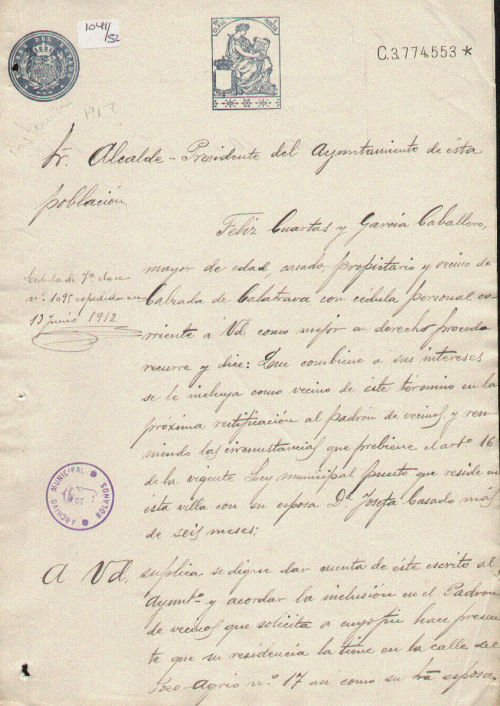 1041/52
C.3.774.553 *
1912
Sr. Alcalde-Presidente del Ayuntamiento de ésta
población
Feliz Cuartas y García Caballero,
mayor de edad, casado, propietario y vecino de
Calzada de Calatrava con cédula personal co-
rriente á Vd como mejor en derecho proceda
recurre y dice: Que combiene a sus intereses
se le incluya como vecino de este término en la
próxima rectificación al padrón de vecinos y reu-
niendo las circunstancias que prebiene el artº 16
de la vigente Ley municipal puesto que reside en
ésta villa con su esposa Dª Josefa Casado mas
de seis meses;
Cédula de 7ª clase
nº 1095 expedida en
13 Junio 1912
ARCHIVO MUNICIPAL
BOLAÑOS
A Vd. suplica se digne dar cuenta de éste escrito al
Ayuntº y acordar la inclusión en el Padrón
de vecinos que solicita a cuyo fin hace presen-
te que su residencia la tiene en la calle del
Pozo-Agrio nº 17 asi como su esposa.